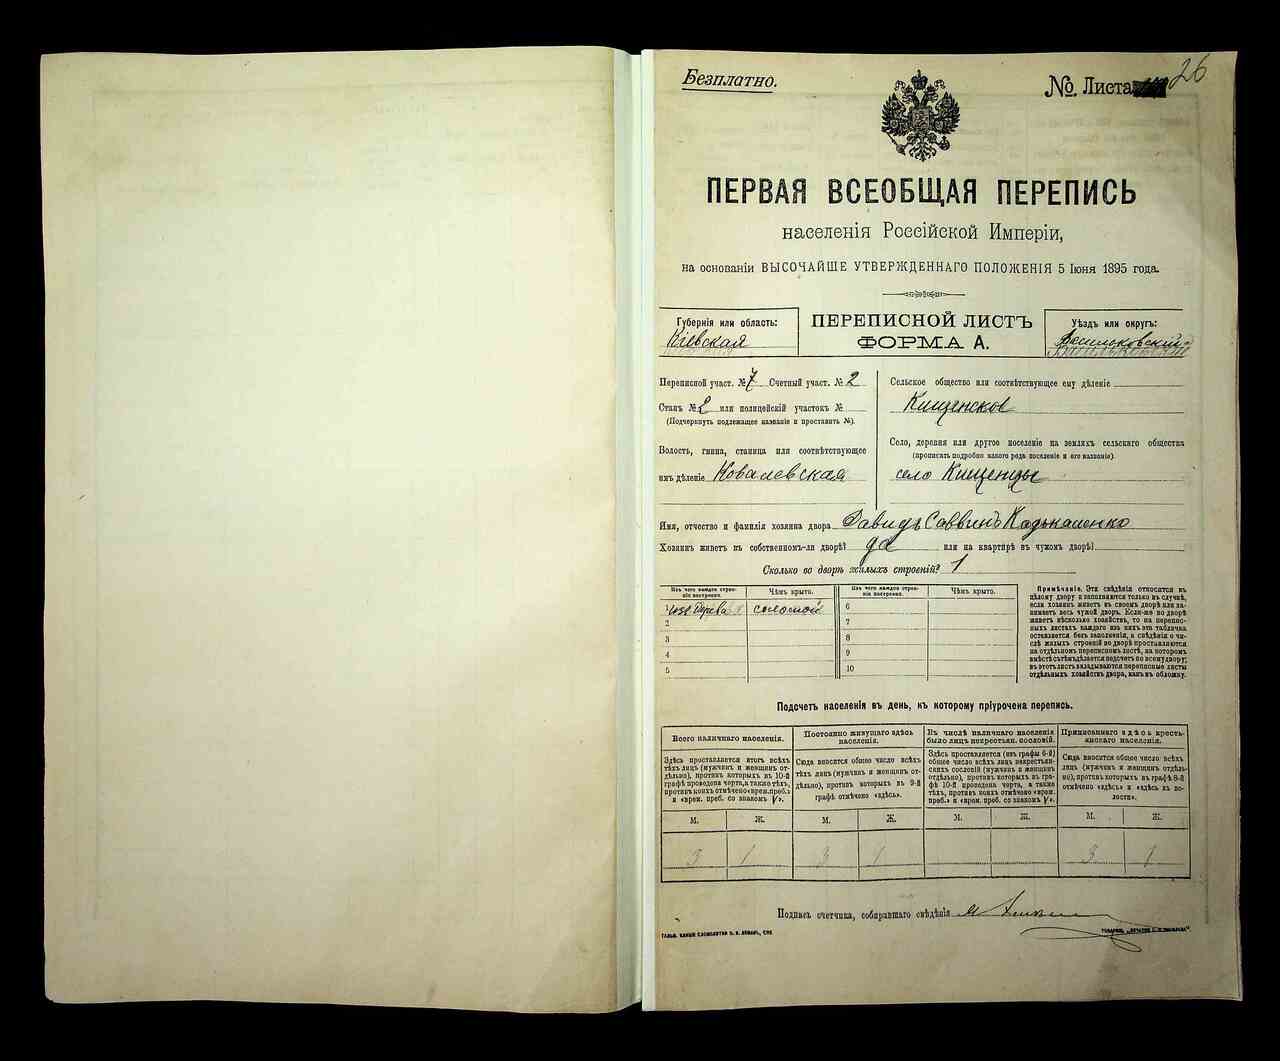 Безплатно.
№ Листа 26
ПЕРВАЯ ВСЕОБЩАЯ ПЕРЕПИСЬ
населенія Россійской Имперіи,
на основаніи ВЫСОЧАЙШЕ УТВЕРЖДЕННАГО ПОЛОЖЕНІЯ 5 Іюня 1895 года.
Губернія или область:
Кіевская
ПЕРЕПИСНОЙ ЛИСТЪ
ФОРМА А.
Уѣздъ или округъ:
Васильковскій
Переписной участ. № 7 Счетный участ. № 2
Станъ № 2 или полицейскій участокъ №
(Подчеркнуть подлежащее названіе и проставить №).
Волость, гмина, станица или соотвѣтствующее
имъ дѣленіе Ковалевская
Сельское общество или соотвѣтствующее ему дѣленіе
Кищенское
Село, деревня или другое поселеніе на земляхъ сельскаго общества
(прописать подробно какого рода поселеніе и его названіе).
село Кищенцы
Имя, отчество и фамилія хозяина двора Давидъ Саввинъ
Хозяинъ живетъ въ собственномъ-ли дворѣ? да или на квартирѣ въ чужомъ дворѣ?
Сколько во дворѣ жилыхъ строеній? 1
Изъ чего каждое строе-
ніе построено.
Чѣмъ крыто.
Изъ чего каждое строе-
ніе построено.
Чѣмъ крыто.
изъ дерева соломой
2
3
4
5
6
7
8
9
10
Примѣчаніе. Эти свѣдѣнія относятся къ
цѣлому двору и заполняются только въ случаѣ,
если хозяинъ живетъ въ своемъ дворѣ или за-
нимаетъ весь чужой дворъ. Если-же во дворѣ
живетъ нѣсколько хозяйствъ, то на перепис-
ныхъ листахъ каждаго изъ нихъ эта табличка
оставляется безъ заполненія, а свѣдѣнія о чи-
слѣ жилыхъ строеній во дворѣ проставляются
на отдѣльномъ переписномъ листѣ, на которомъ
вмѣстѣ съ тѣмъ дѣлается подсчетъ по всему двору;
въ этотъ листъ вкладываются переписные листы
отдѣльныхъ хозяйствъ двора, какъ въ обложку.
Подсчетъ населенія въ день, къ которому пріурочена перепись.
Всего наличнаго населенія.
Здѣсь проставляется итогъ всѣхъ
лицъ (мужчинъ и женщинъ от-
дѣльно), противъ которыхъ въ 10-й
графѣ проведена черта, а также тѣхъ,
противъ коихъ отмѣчено «врем. преб.»
и «врем. преб. со знакомъ V».
Постоянно живущаго здѣсь
населенія.
Сюда вносится общее число всѣхъ
тѣхъ лицъ (мужчинъ и женщинъ от-
дѣльно), противъ которыхъ въ 9-й
графѣ отмѣчено «здѣсь».
Въ числѣ наличнаго населенія
было лицъ некрестьян. сословій.
Здѣсь проставляется (изъ графы 6-й)
общее число всѣхъ лицъ некрестьян-
скихъ сословій (мужчинъ и женщинъ
отдѣльно), противъ которыхъ въ гра-
фѣ 10-й проведена черта, а также
тѣхъ, противъ коихъ отмѣчено «врем.
преб.» и «врем. преб. со знакомъ V».
Приписаннаго здѣсь кресть-
янскаго населенія.
Сюда вносится общее число всѣхъ
лицъ (мужчинъ и женщинъ отдѣль-
но), противъ которыхъ въ графѣ 8-й
отмѣчено «здѣсь» и «здѣсь въ во-
лости».
М. Ж. М. Ж. М. Ж. М. Ж.
3 1 3 1 3 1
Подпись счетчика, собиравшаго свѣдѣнія